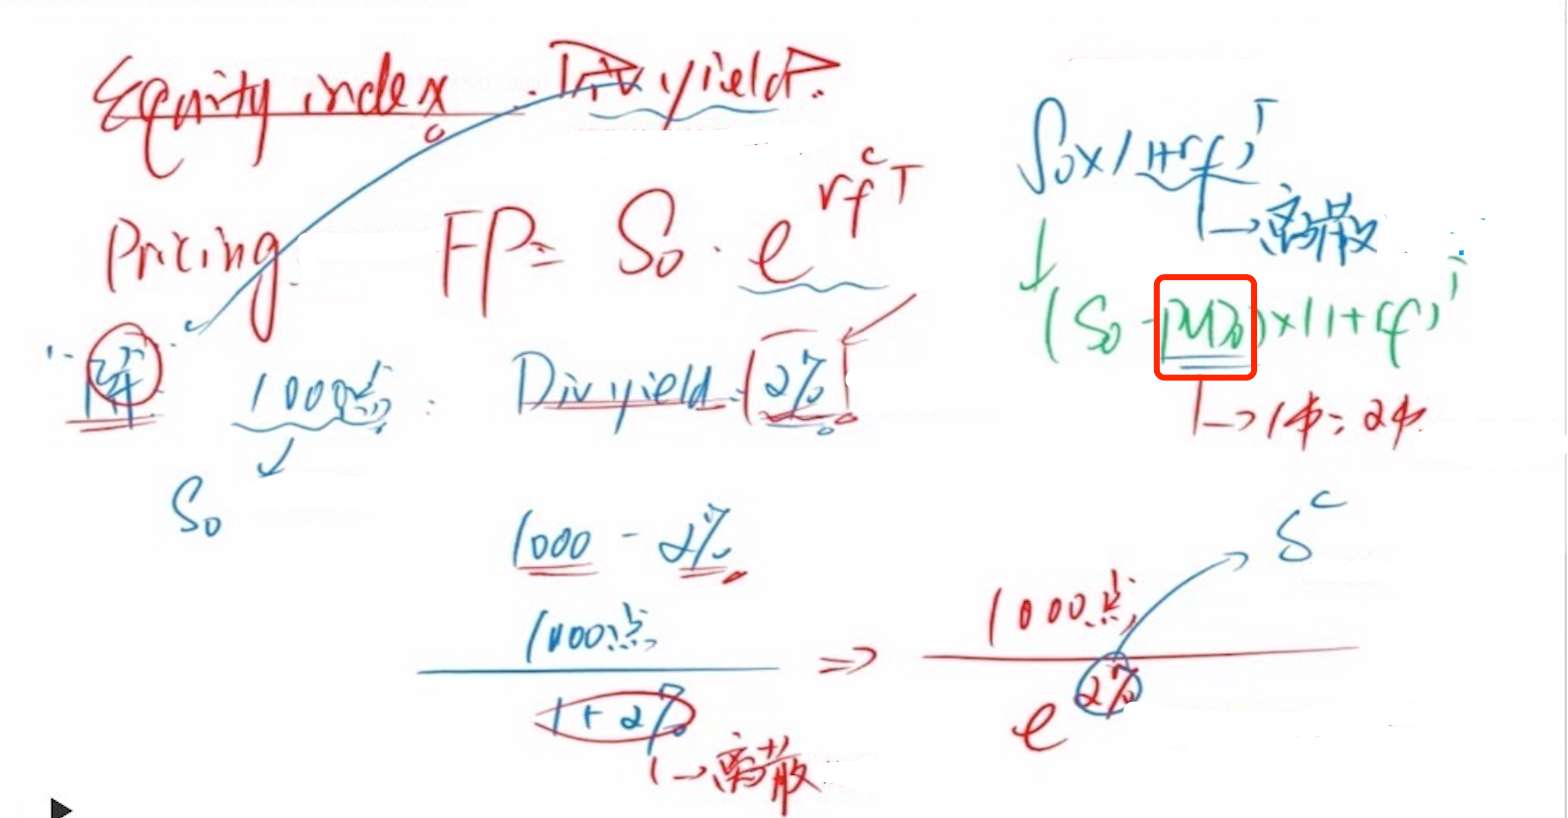 Equity index . Div yield.
Pricing. FP = S₀ · e^{rf^c T}
S₀ × (1+rf)^T
→ 离散
(S₀ - PVD₀) × (1+rf)^T
→ 1中: 2中
1000点 : Div yield : 2%
S₀
1000 - 2%
1000点
1 + 2%
→ 离散
⇒
1000点
e^{2%}
δ^c